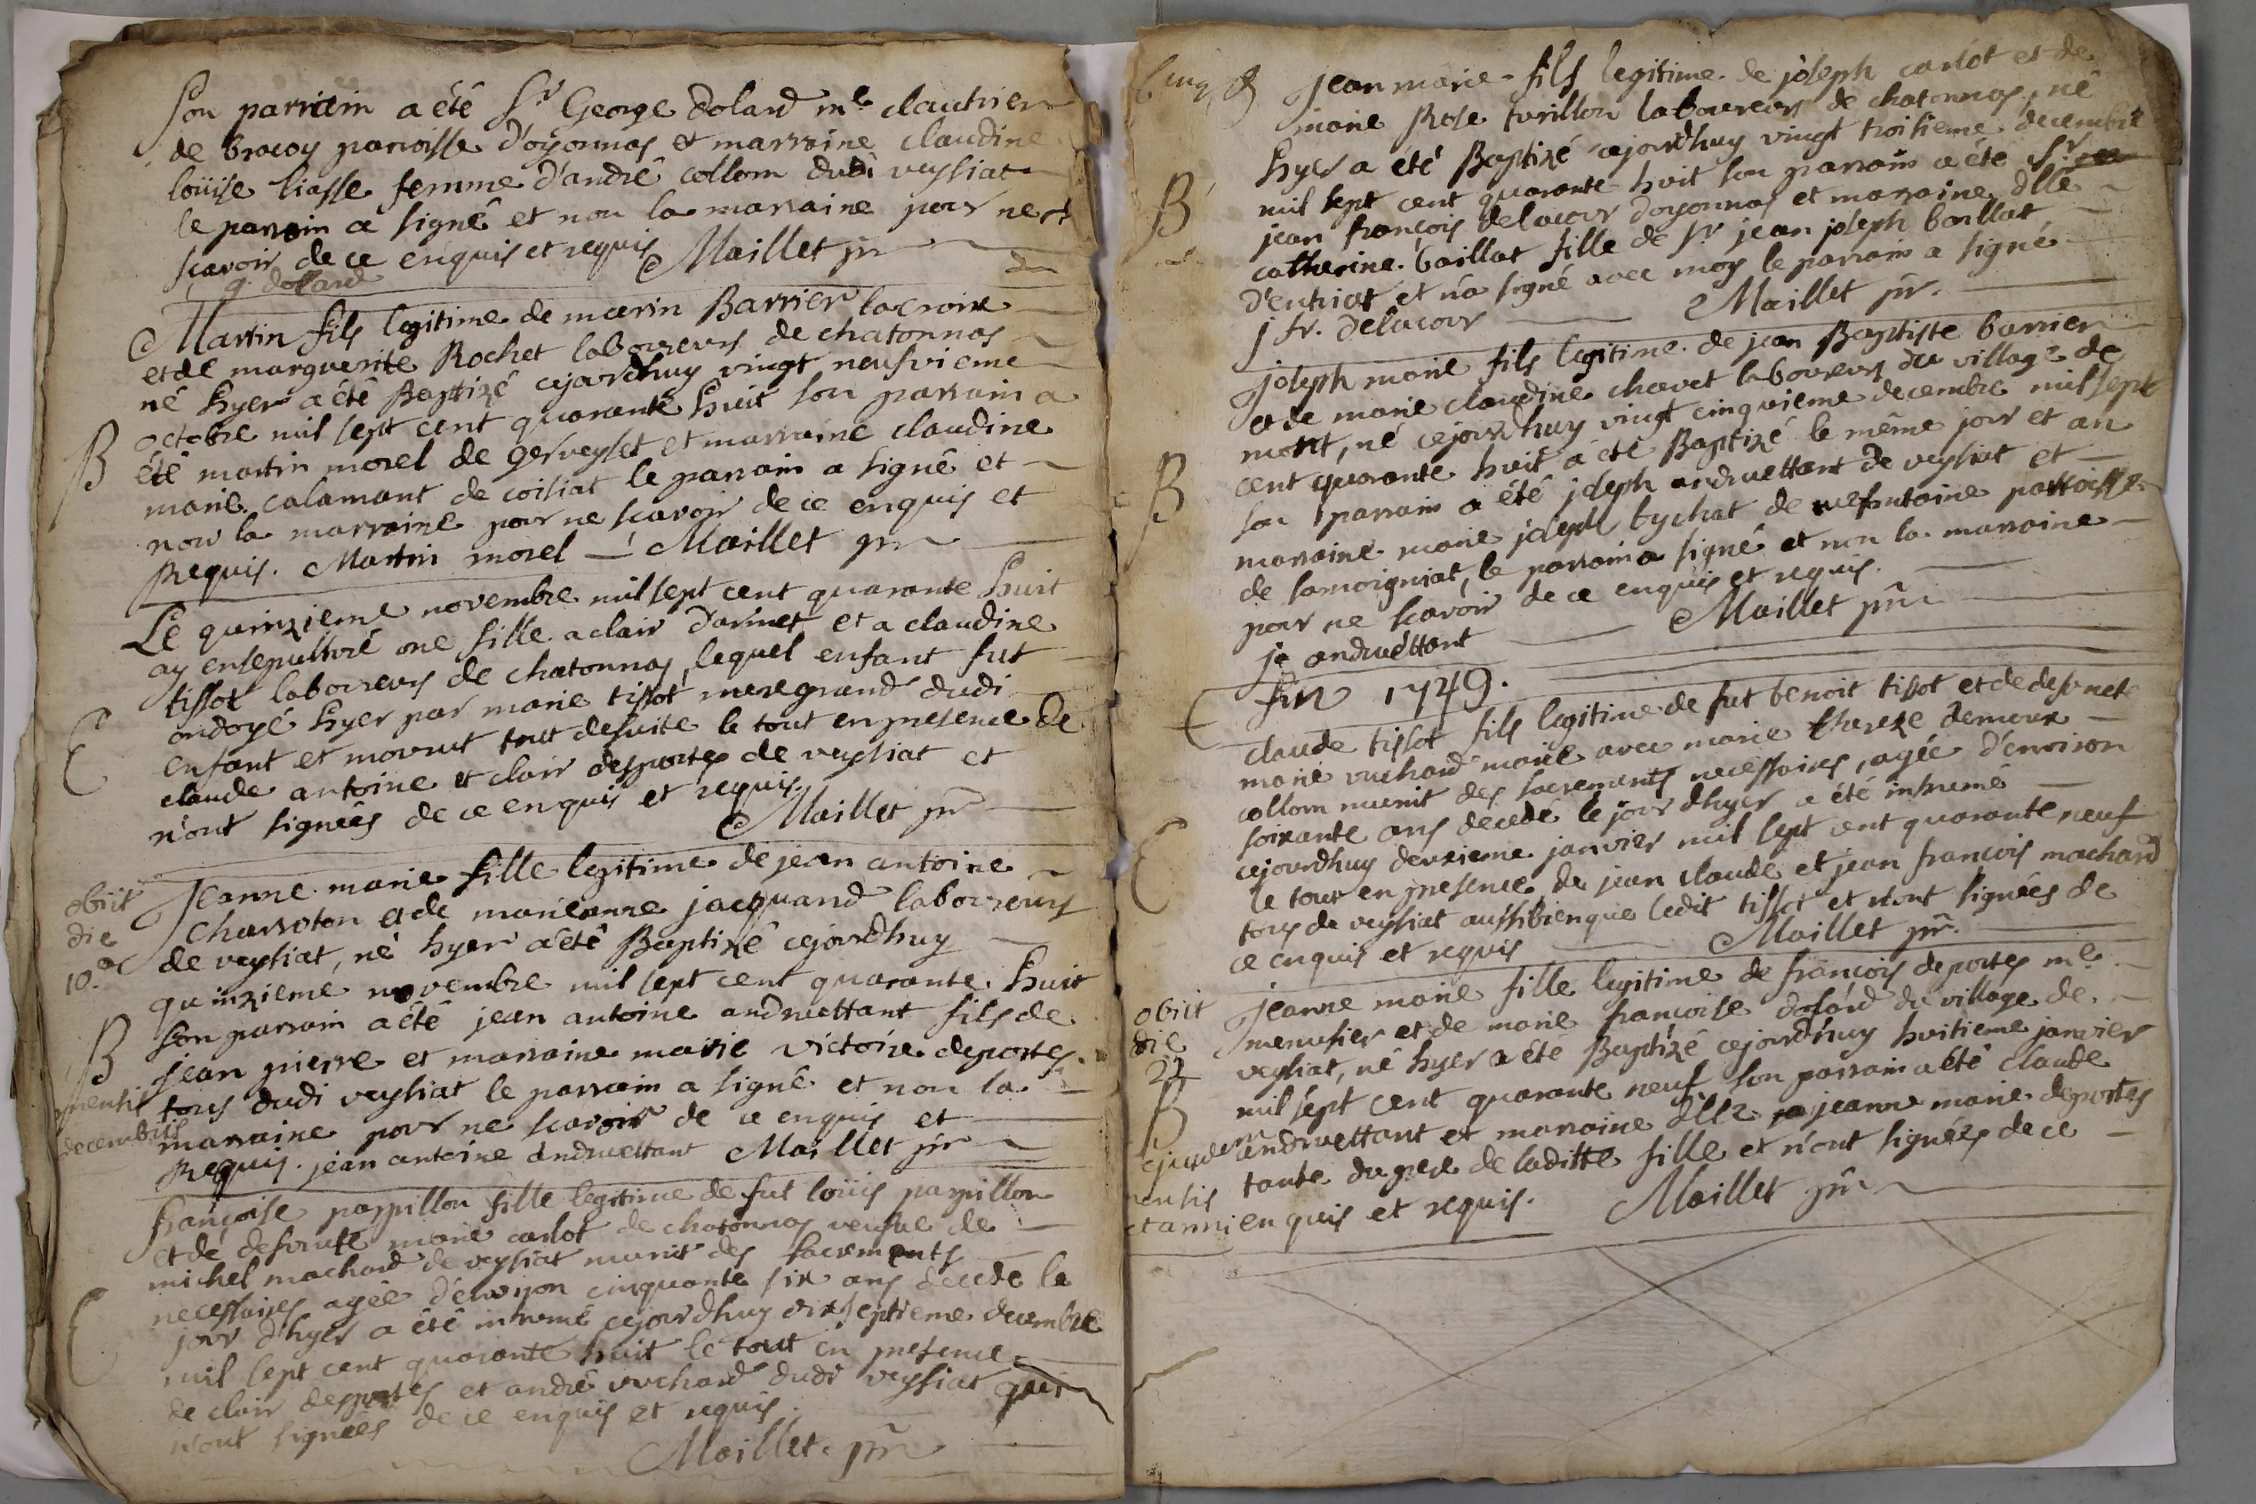 Son parrain a été Sr George dolard me clautrier
de bracoy parroisse d'oyonnas et marraine claudine
loüise liasse femme d'andré collom dudi veysiat
le parrain a signé et non la marraine pour ne
scavoir de ce enquis et requis Maillet ptr
g. dollard
Martin fils legitime de marin Barrier lacroix
et de marguerite Rochet laboureurs de chatonnas
né hyer a été Baptizé cejourdhuy vingt neufvieme
octobre mil sept cent quarante huit son parrain a
B
été martin morel de gerveyset et marraine claudine
marie calamant de coisiat le parrain a signé et
non la marraine pour ne scavoir de ce enquis et
Requis. Martin morel Maillet ptr
Le quinzieme novembre mil sept cent quarante huit
ay ensepulturé une fille a clair darmet et a claudine
tissot laboureurs de chatonnas, lequel enfant fut
ondoyé hyer par marie tissot meregrand dudi
enfant et mourut tout desuite le tout en presence de
claude antoine et clair desportes de veysiat et
n'ont signées de ce enquis et requis.
Maillet ptr
obiit
die
10a
Jeanne marie fille legitime de jean antoine
charroton et de marieanne jacquand laboureurs
de veysiat, né hyer a été Baptizé cejourdhuy
quinzieme novembre mil sept cent quarante huit
son parrain a été jean antoine andruettant fils de
B
jean pierre et marraine marie victoire deportes
mensis
tous dudi veysiat le parrain a signé et non la
decembris
marraine pour ne scavoir de ce enquis et
Requis. jean antoine andruettant Maillet ptr
françoise pappillon fille legitime de fut loüis pappillon
et de defunte marie carlot de chatonnas veufve de
michel machard de veysiat munit des sacrements
necessaires agée d'environ cinquante six ans decede le
jour d'hyer a été inhumé cejourdhuy dixseptieme decembre
mil sept cent quarante huit le tout en presence
de clair desportes et andré vuchard dudi veysiat qui
n'ont signées de ce enquis et requis.
Maillet ptr
jean marie fils legitime de joseph carlot et de
marie Rose turillon laboureurs de chatonnas, né
hyer a été Baptizé cejourdhuy vingt troisieme decembre
B
mil sept cent quarante huit son parrain a été Sr
jean françois delacour d'oyonnas et marraine dlle
catherine baillat fille de Sr jean joseph baillat
d'entriat et n'a signé avec moy le parrain a signé
j fr. Delacour Maillet ptr.
joseph marie fils legitime de jean Baptiste barrier
et de marie claudine chavet laboureurs du village de
mont, né cejourdhuy vingt cinquieme decembre mil sept
B
cent quarante huit a été Baptizé le même jour et an
son parrain a été joseph andruettant de veysiat et
marraine marie joseph tychat de parroisse
de samoigniat, le parrain a signé et non la marraine
pour ne scavoir de ce enquis et requis.
jo andruéttant Maillet ptr
fin 1749.
claude tissot fils legitime de fut benoit tissot et de defuncte
marie vuchard marié avec marie thereze
collom munit des sacrements necessaires, agée d'environ
soixante ans decedé le jour dhyer a été inhumé
cejourdhuy deuxieme janvier mil sept cent quarante neuf
le tout en presence de jean claude et jean francois machard
tous de veysiat aussibienque ledit tissot et n'ont signées de
ce enquis et requis Maillet ptr.
obiit
die
22
jeanne marie fille legitime de françois deportes me
menusier et de marie françoise dolard du village de
veysiat, né hyer a été Baptizé cejourdhuy huitieme janvier
B
mil sept cent quarante neuf son parrain a été claude
ejusdem
andruettant et marraine dlle jeanne marie deportes
mensis
tante du pere de laditte fille et n'ont signées de ce
et anni
enquis et requis. Maillet ptr